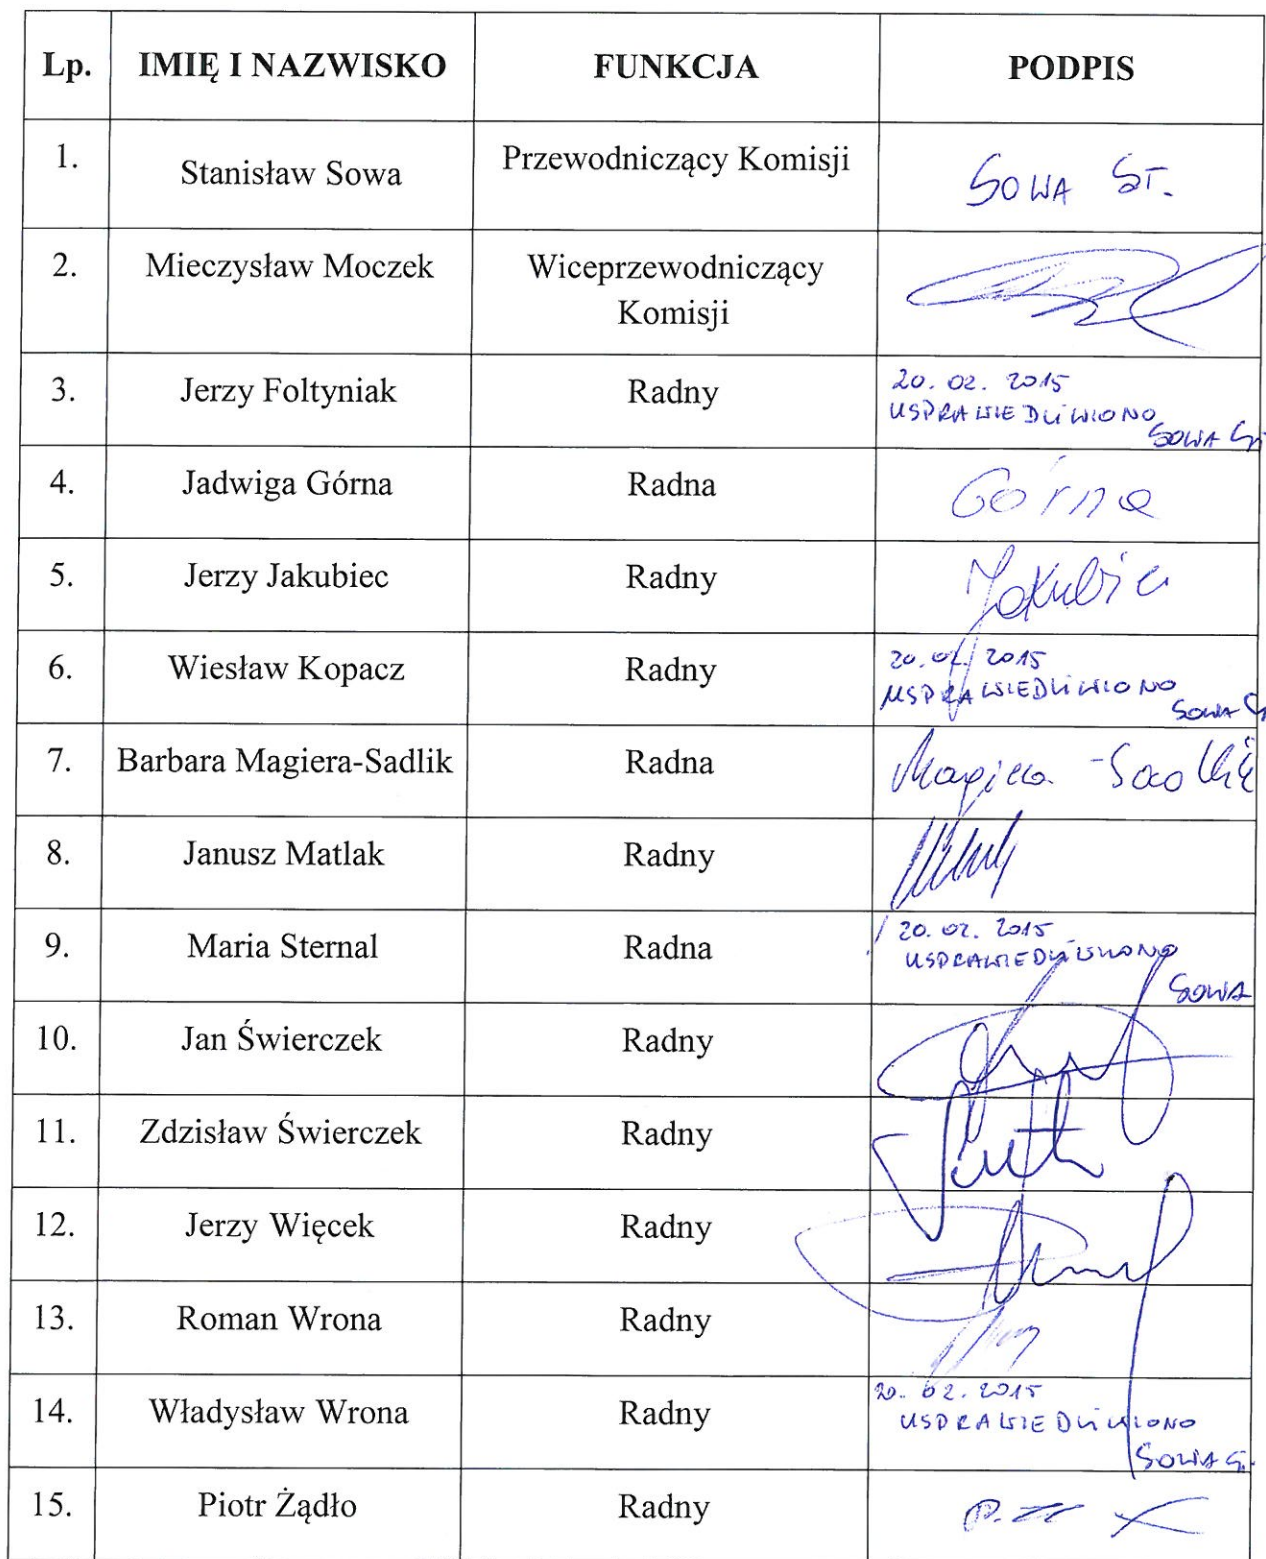 Lp. IMIĘ I NAZWISKO FUNKCJA PODPIS
1. Stanisław Sowa Przewodniczący Komisji SOWA ST.
2. Mieczysław Moczek Wiceprzewodniczący
Komisji
3. Jerzy Foltyniak Radny 20.02.2015
USPRAWIEDLIWIONO
SOWA St
4. Jadwiga Górna Radna Górna
5. Jerzy Jakubiec Radny Jakubiec
6. Wiesław Kopacz Radny 20.02.2015
USPRAWIEDLIWIONO
SOWA
7. Barbara Magiera-Sadlik Radna Magiera-Sadlik
8. Janusz Matlak Radny
9. Maria Sternal Radna 20.02.2015
USPRAWIEDLIWIONO
SOWA
10. Jan Świerczek Radny
11. Zdzisław Świerczek Radny
12. Jerzy Więcek Radny
13. Roman Wrona Radny
14. Władysław Wrona Radny 20.02.2015
USPRAWIEDLIWIONO
SOWA S.
15. Piotr Żądło Radny